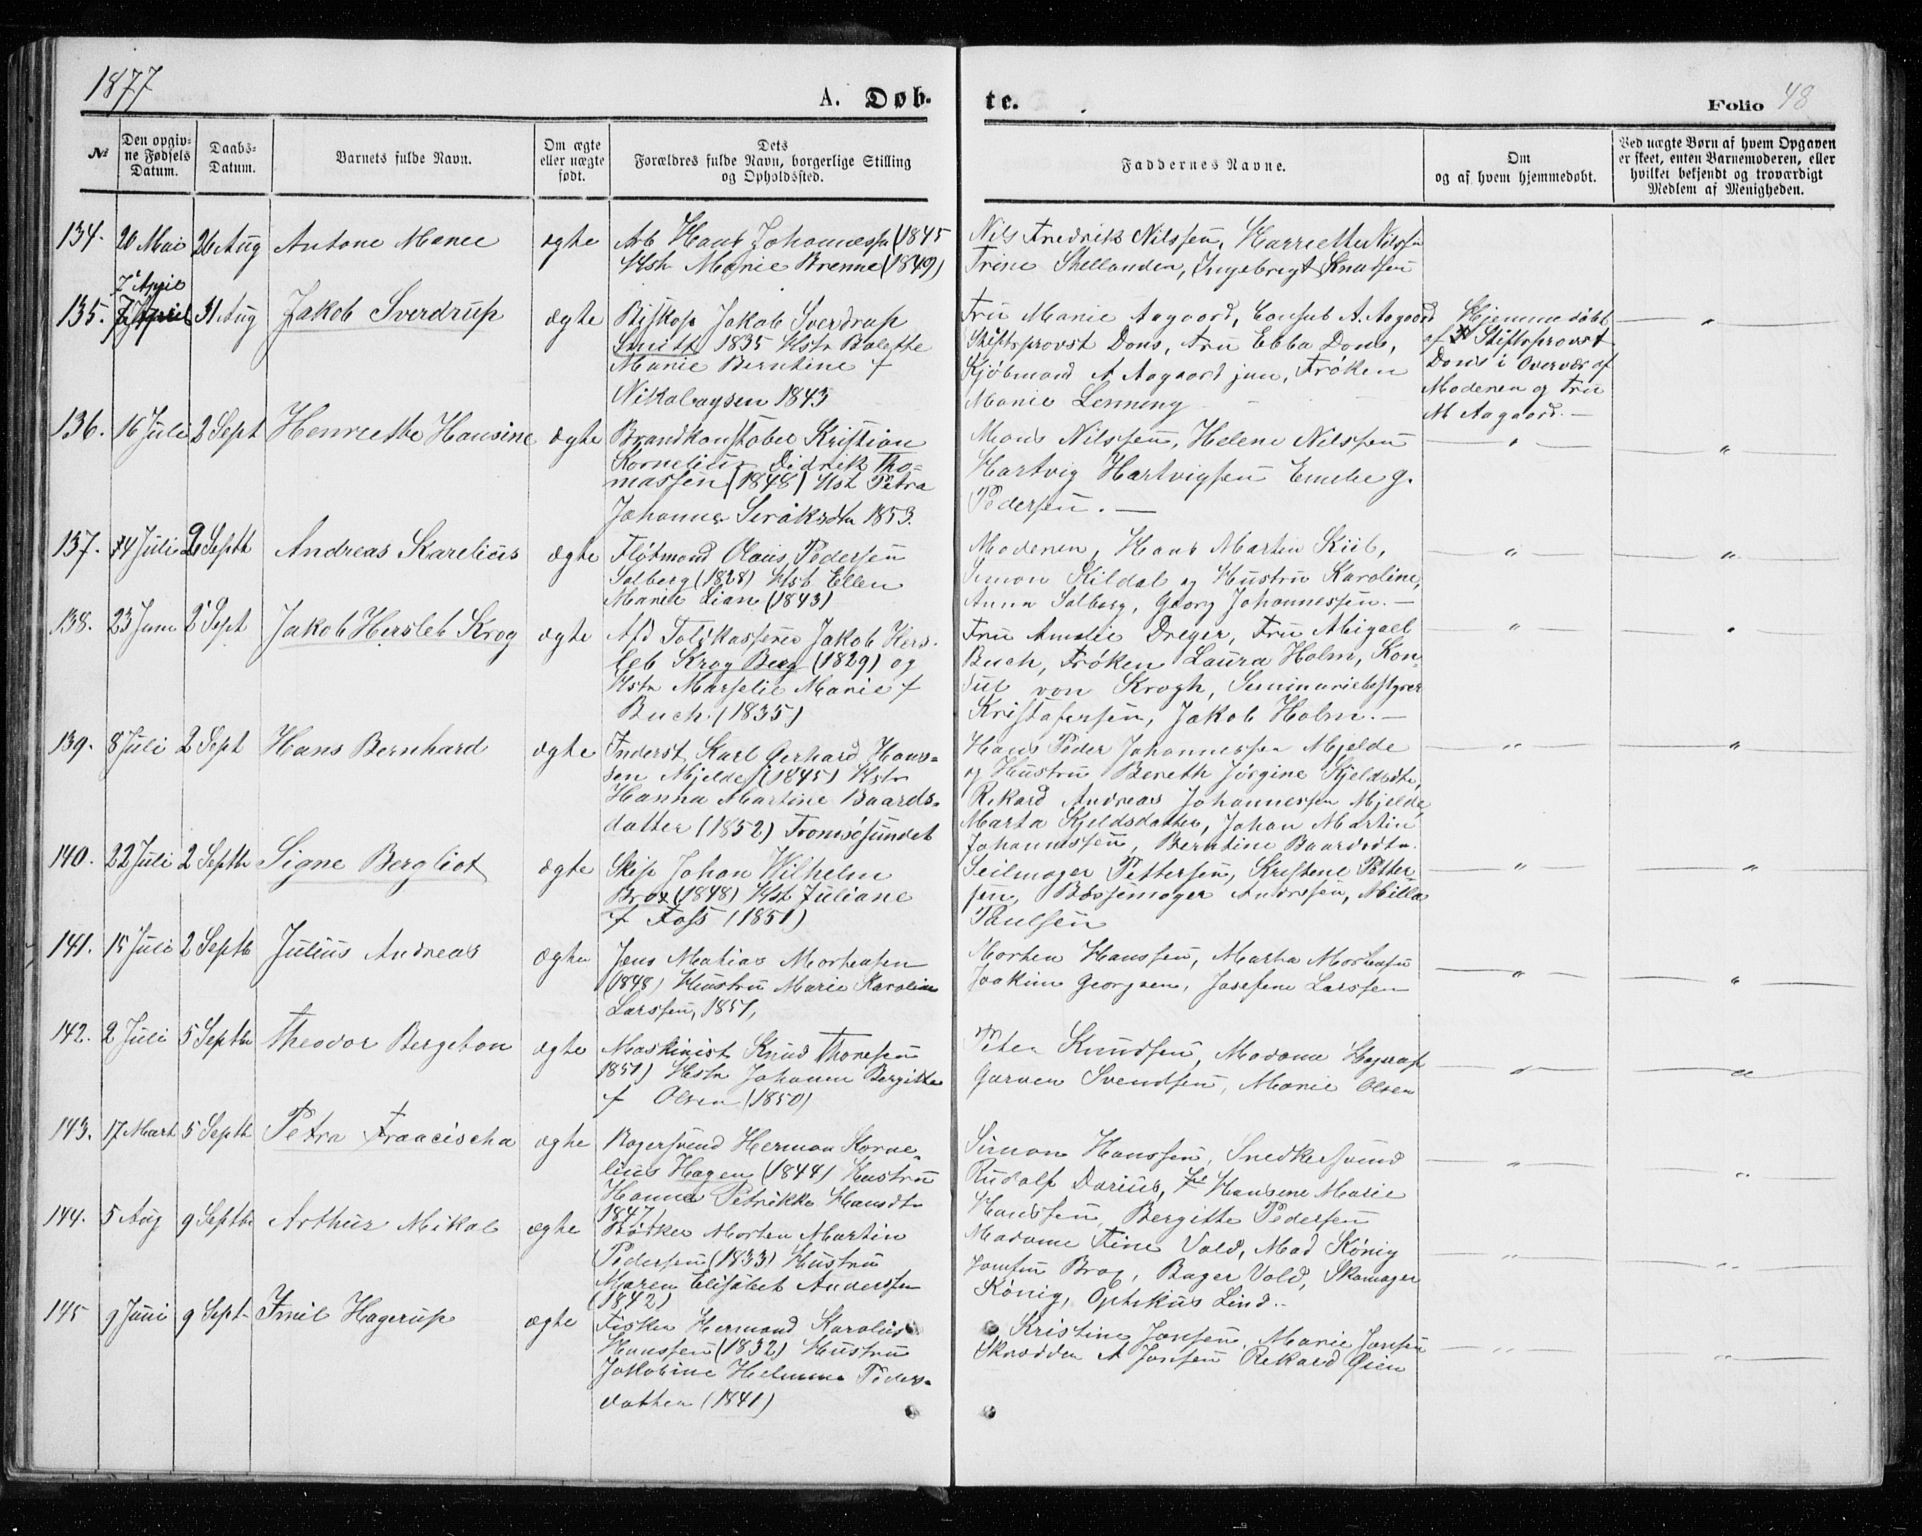 1877
A. Døb-
te.
Folio 48
№
Den opgiv-
ne Fødsels
Datum.
Daabs-
Datum.
Barnets fulde Navn.
Om ægte
eller uægte
født.
Dets
Forældres fulde Navn, borgerlige Stilling
og Opholdssted.
Faddernes Navne.
Om
og af hvem hjemmedøbt.
Ved uægte Børn af hvem Opgaven
er skeet, enten Barnemoderen, eller
hvilket bekjendt og troværdigt
Medlem af Menigheden.
134. 20 Mai 26 Aug Antone Marie ægte Arb Hans Johannessen (1845
Hst Marie Brenne (1849)
Nils Fredrik Nilssen, Harriette Nilssen
Trine Skellanden, Ingebrigt Knudsen
7 April
135. 7 April 31 Aug Jakob Sverdrup ægte Biskop Jakob Sverdrup
Smitt 1835 Hstr Bolette
Marie Berntine f
Nikolaysen 1843
Fru Marie Aagaard, Consul A. Aagaard
Stiftsprovst Dons, Fru Ebba Dons,
Kjøbmand A Aagaard jun, Frøken
Marie Lenning
Hjemmedøbt
af Stiftsprovst
Dons i Overvær af
Moderen og Fru
M Aagaard. —
136. 16 Juli 2 Sept Henriette Hansine ægte Brandkonstabel Kristian
Kornelius Didrik Tho-
massen (1848) Hst Petra
Johanna Siråksdtr 1853.
Mons Nilssen, Helene Nilssen
Hartvig Hartvigsen Emelie g.
Pedersen. —
137. 14 Juli 2 Septb Andreas Karelius ægte Fløtmand Olaus Pedersen
Solberg (1828) Hst Ellen
Marie Lian (1843)
Moderen, Hans Martin Kiil,
Simon Kildal og Hustru Karoline,
Anna Solberg, Georg Johannessen. —
138. 23 Juni 2 Sept Jakob Hersleb Krog ægte Afd Toldkasserer Jakob Hers-
leb Krog Berg (1829) og
Hstr Marselie Marie f
Buch. (1835)
Fru Amalie Dreyer, Fru Abigael
Buch, Frøken Laura Holm, Kon-
sul von Krogh, Seminariebestyrer
Kristofersen, Jakob Holm. —
139. 8 Juli 2 Sept Hans Bernhard ægte Inderst Karl Gerhard Hans-
sen Mjelde (1845) Hstr
Hanna Martine Baards-
datter (1852) Tromsøsundet
Hans Peder Johannessen Mjelde
og Hustru Bereth Jørgine Kjeldsdtr,
Rikard Andreas Johannessen Mjelde,
Marta Kjeldsdatter, Johan Martin
Johannessen, Berntine Baardsdtr.
140. 22 Juli 2 Septb Signe Bergliot ægte Skip Johan Wilhelm
Brox (1848) Hst Juliane
f Foss (1851)
Seilmager Pettersen, Kristene Petter-
sen, Bøssemager Andresen, Milla
Paulsen
141. 15 Juli 2 Septb Julius Andreas ægte Jens Matias Mortensen
(1848) Hustru Marie Karoline
Larssen, 1851,
Morten Hanssen, Marta Mortensen
Joakim Georgsen, Josefine Larssen
142. 2 Juli 5 Septb Theodor Bergeton ægte Maskinist Knud Thoresen
1851) Hstr Johanne Bergitte
f Olsen (1850)
Peter Knudsen, Madame Hagerup
Garver Svendsen, Marie Olsen
143. 17 Mart 5 Septb Petra Francischa ægte Bagersvend Herman Korne-
lius Hagen (1844) Hustru
Hanna Petrikke Hansdtr
1847)
Simon Hanssen, Snedkersvend
Rudolf Darius, Hansene Marie
Hanssen, Bergitte Pedersen
144. 5 Aug 9 Septb Arthur Mikal ægte Bødker Morten Martin
Pedersen (1833) Hustru
Maren Elisabet Anderssen
(1842)
Madame Tine Vold, Mad König
Jomfru Brox, Bager Vold, Skomager
König, Optikus Lind.
145 9 Juni 9 Sept. Emil Hagerup ægte Fisker Hermand Karolius
Hanssen (1832) Hustru
Jakobine Helmine Peders-
datter (1841)
Kristine Jonsen, Marie Jonsen
Skrædder A Jonsen Rikard Øien